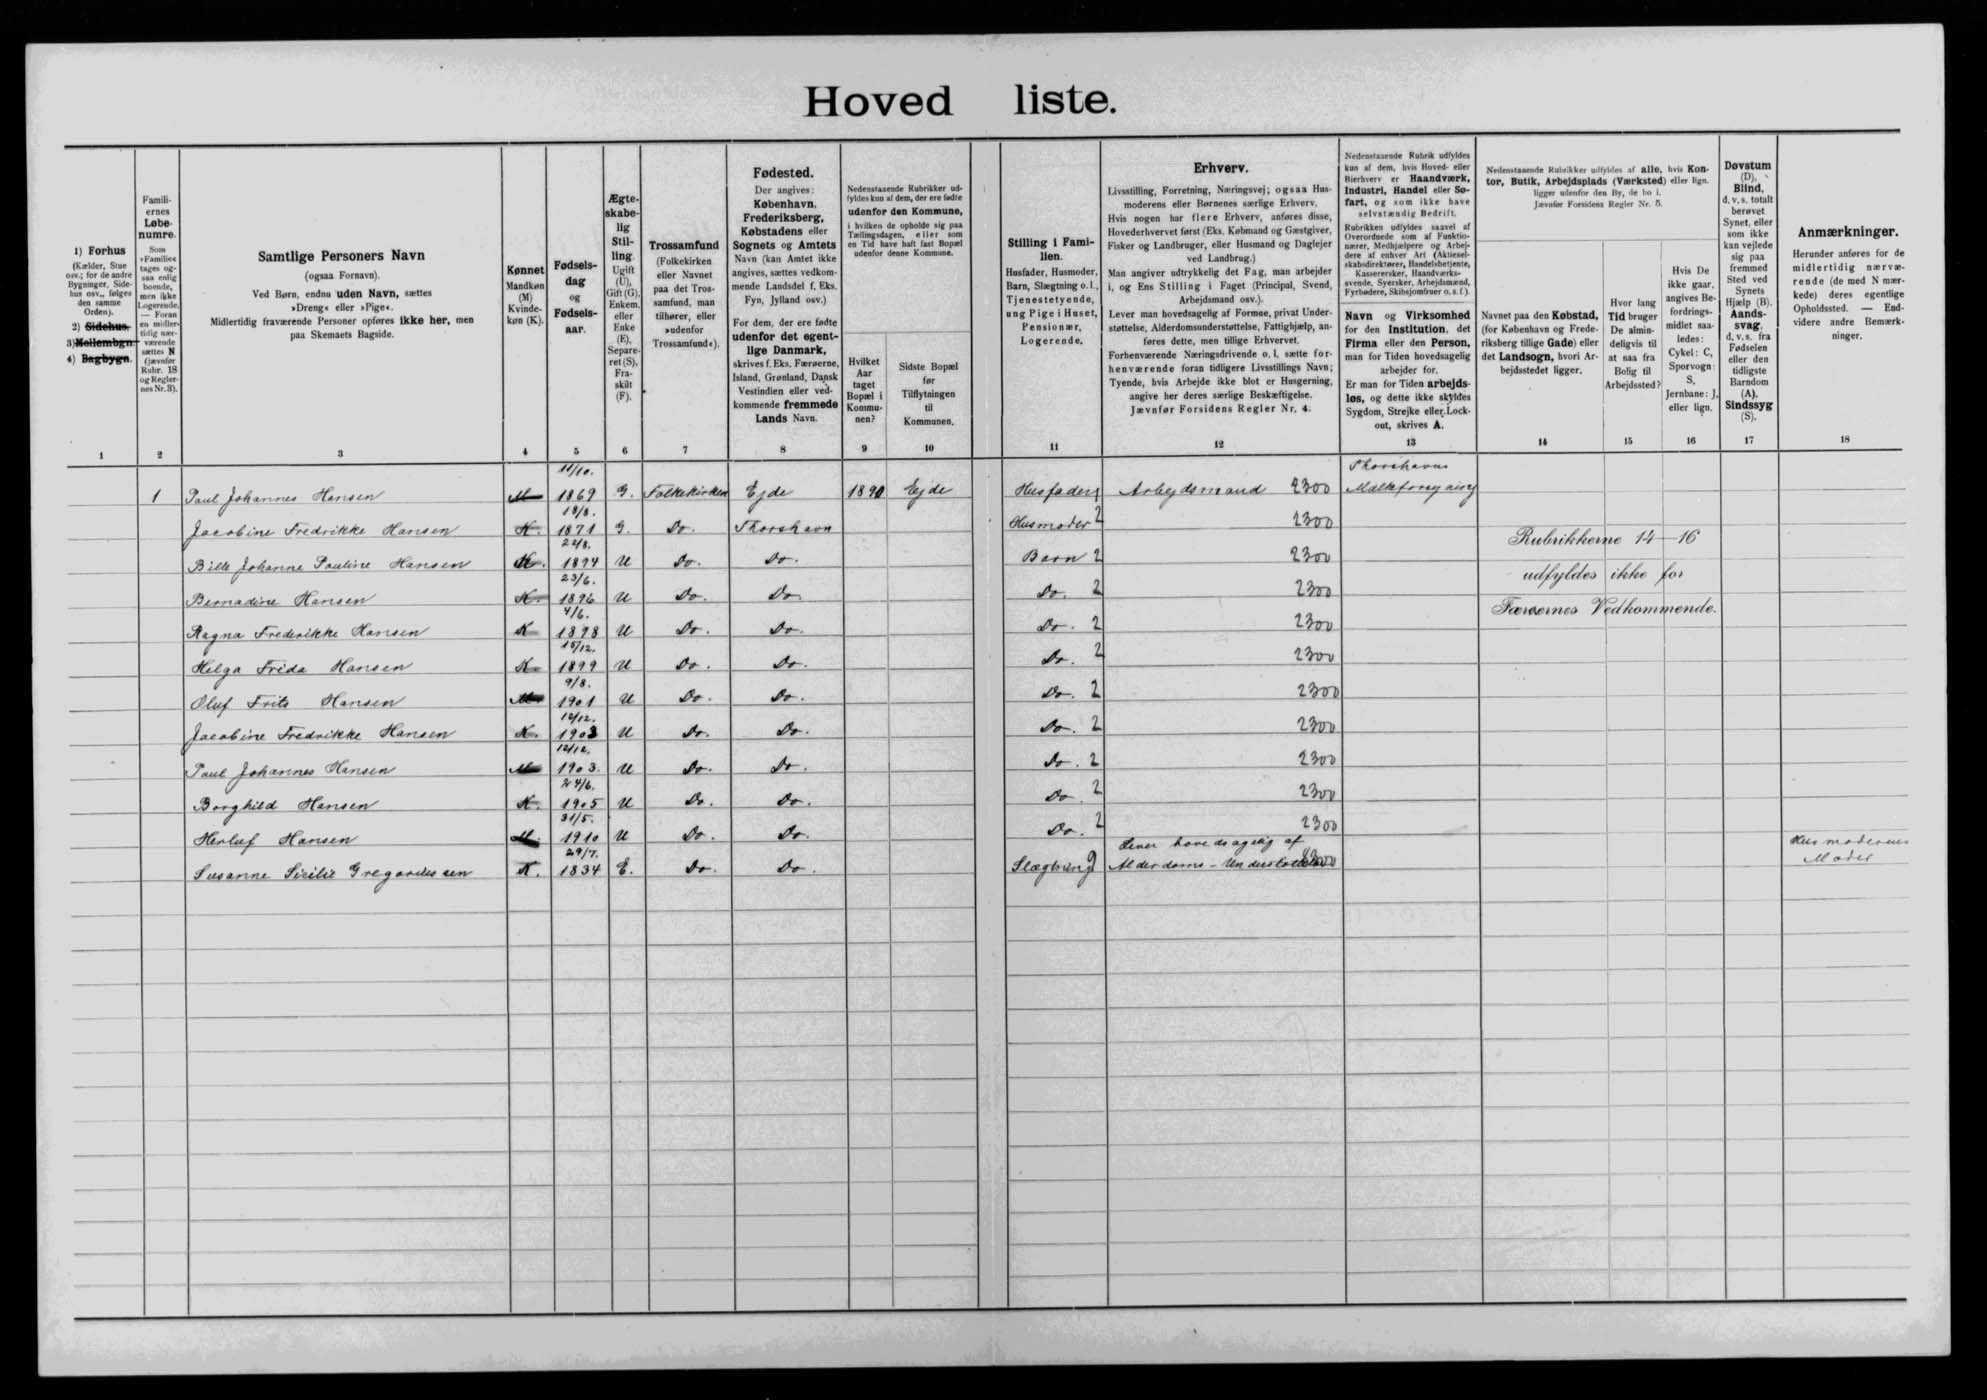 Hoved liste.
1) Forhus
(Kælder, Stue
osv.; for de andre
Bygninger, Side-
hus osv., følges
den samme
Orden).
2) Sidehus.
3) Mellembgn.
4) Bagbygn.
Famili-
ernes
Løbe-
numre.
Som
»Familie«
tages og-
saa enlig
boende,
men ikke
Logerende.
— Foran
en midler-
tidig nær-
værende
sættes N
(jævnfør
Rubr. 18
og Regler-
nes Nr. 3).
Samtlige Personers Navn
(ogsaa Fornavn).
Ved Børn, endnu uden Navn, sættes
»Dreng« eller »Pige«.
Midlertidig fraværende Personer opføres ikke her, men
paa Skemaets Bagside.
Kønnet
Mandkøn
(M)
Kvinde-
køn (K).
Fødsels-
dag
og
Fødsels-
aar.
Ægte-
skabe-
lig
Stil-
ling.
Ugift
(U),
Gift (G),
Enkem.
eller
Enke
(E),
Separe-
ret (S),
Fra-
skilt
(F).
Trossamfund
(Folkekirken
eller Navnet
paa det Tros-
samfund, man
tilhører, eller
»udenfor
Trossamfund«).
Fødested.
Der angives:
København,
Frederiksberg,
Købstadens eller
Sognets og Amtets
Navn (kan Amtet ikke
angives, sættes vedkom-
mende Landsdel f. Eks.
Fyn, Jylland osv.)
For dem, der ere fødte
udenfor det egent-
lige Danmark,
skrives f. Eks. Færøerne,
Island, Grønland, Dansk
Vestindien eller ved-
kommende fremmede
Lands Navn.
Nedenstaaende Rubrikker ud-
fyldes kun af dem, der ere fødte
udenfor den Kommune,
i hvilken de opholde sig paa
Tællingsdagen, eller som
en Tid have haft fast Bopæl
udenfor denne Kommune.
Hvilket
Aar
taget
Bopæl i
Kommu-
nen?
Sidste Bopæl
før
Tilflytningen
til
Kommunen.
Stilling i Fami-
lien.
Husfader, Husmoder,
Barn, Slægtning o. l.,
Tjenestetyende,
ung Pige i Huset,
Pensionær,
Logerende.
Erhverv.
Livsstilling, Forretning, Næringsvej; ogsaa Hus-
moderens eller Børnenes særlige Erhverv.
Hvis nogen har flere Erhverv, anføres disse,
Hovederhvervet først (Eks. Købmand og Gæstgiver,
Fisker og Landbruger, eller Husmand og Daglejer
ved Landbrug.)
Man angiver udtrykkelig det Fag, man arbejder
i, og Ens Stilling i Faget (Principal, Svend,
Arbejdsmand osv.).
Lever man hovedsagelig af Formue, privat Under-
støttelse, Alderdomsunderstøttelse, Fattighjælp, an-
føres dette, men tillige Erhvervet.
Forhenværende Næringsdrivende o. l. sætte for-
henværende foran tidligere Livsstillings Navn;
Tyende, hvis Arbejde ikke blot er Husgerning,
angive her deres særlige Beskæftigelse.
Jævnfør Forsidens Regler Nr. 4.
Nedenstaaende Rubrik udfyldes
kun af dem, hvis Hoved- eller
Bierhverv er Haandværk,
Industri, Handel eller Sø-
fart, og som ikke have
selvstændig Bedrift.
Rubrikken udfyldes saavel af
Overordnede som af Funktio-
nærer, Medhjælpere og Arbej-
dere af enhver Art (Aktiesel-
skabsdirektører, Handelsbetjente,
Kasserersker, Haandværks-
svende, Syersker, Arbejdsmænd,
Fyrbødere, Skibsjomfruer o. s. f.).
Navn og Virksomhed
for den Institution, det
Firma eller den Person,
man for Tiden hovedsagelig
arbejder for.
Er man for Tiden arbejds-
løs, og dette ikke skyldes
Sygdom, Strejke eller Lock-
out, skrives A.
Nedenstaaende Rubrikker udfyldes af alle, hvis Kon-
tor, Butik, Arbejdsplads (Værksted) eller lign.
ligger udenfor den By, de bo i.
Jævnfør Forsidens Regler Nr. 5.
Navnet paa den Købstad,
(for København og Frede-
riksberg tillige Gade) eller
det Landsogn, hvori Ar-
bejdsstedet ligger.
Hvor lang
Tid bruger
De almin-
deligvis til
at naa fra
Bolig til
Arbejdssted?
Hvis De
ikke gaar,
angives Be-
fordrings-
midlet saa-
ledes:
Cykel: C,
Sporvogn:
S,
Jernbane: J,
eller lign.
Døvstum
(D),
Blind,
d. v. s. totalt
berøvet
Synet, eller
som ikke
kan vejlede
sig paa
fremmed
Sted ved
Synets
Hjælp (B).
Aands-
svag,
d. v. s. fra
Fødselen
eller den
tidligste
Barndom
(A),
Sindssyg
(S).
Anmærkninger.
Herunder anføres for de
midlertidig nærvæ-
rende (de med N mær-
kede) deres egentlige
Opholdssted. — End-
videre andre Bemærk-
ninger.
1 2 3 4 5 6 7 8 9 10 11 12 13 14 15 16 17 18
11/10. Thorshavns
1 Paul Johannes Hansen M 1869 G. Folkekirken Ejde 1890 Ejde Husfader 1 Arbejdsmand 2300 Mælkeforsyning
18/8.
Jacobine Fredrikke Hansen K. 1871 G. Do. Thorshavn Husmoder 2 2300
22/8. Rubrikkerne 14—16
Bille Johanne Pauline Hansen K. 1894 U Do. Do. Barn 2 2300
23/6. udfyldes ikke for
Bernadine Hansen K. 1896 U Do. Do. Do. 2 2300
4/6. Færøernes Vedkommende.
Ragna Frederikke Hansen K 1898 U Do. Do. Do. 2 2300
15/12.
Helga Frida Hansen K. 1899 U Do. Do. Do. 2 2300
9/8.
Oluf Frits Hansen M 1901 U Do. Do. Do. 2 2300
12/12.
Jacobine Fredrikke Hansen K. 1903 U Do. Do. Do. 2 2300
12/12.
Paul Johannes Hansen M 1903. U Do. Do. Do. 2 2300
24/6.
Borghild Hansen K. 1905 U Do. Do. Do. 2 2300
31/5.
Herluf Hansen M. 1910 U Do. Do. Do. 2 2300
29/7. Lever hovedsagelig af Husmoderens
Susanne Sicilie Gregoriussen K. 1834 E. Do. Do. Slægtning Alderdoms-Understøttelse Moder